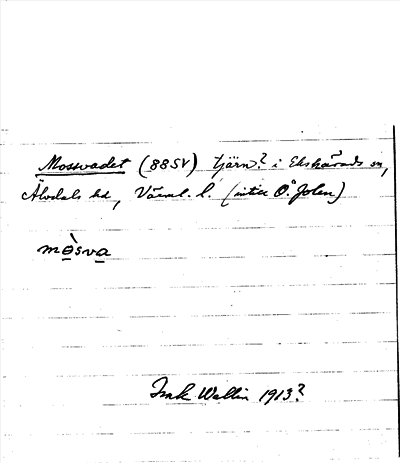 Mossvadet (88SV) tjärn? i Ekshärads sn,
Älvdals hd, Värml. l. (intill Ö. Jolen)
mòsva
Isak Wallin 1913?